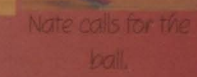 Nate calls for the
ball.